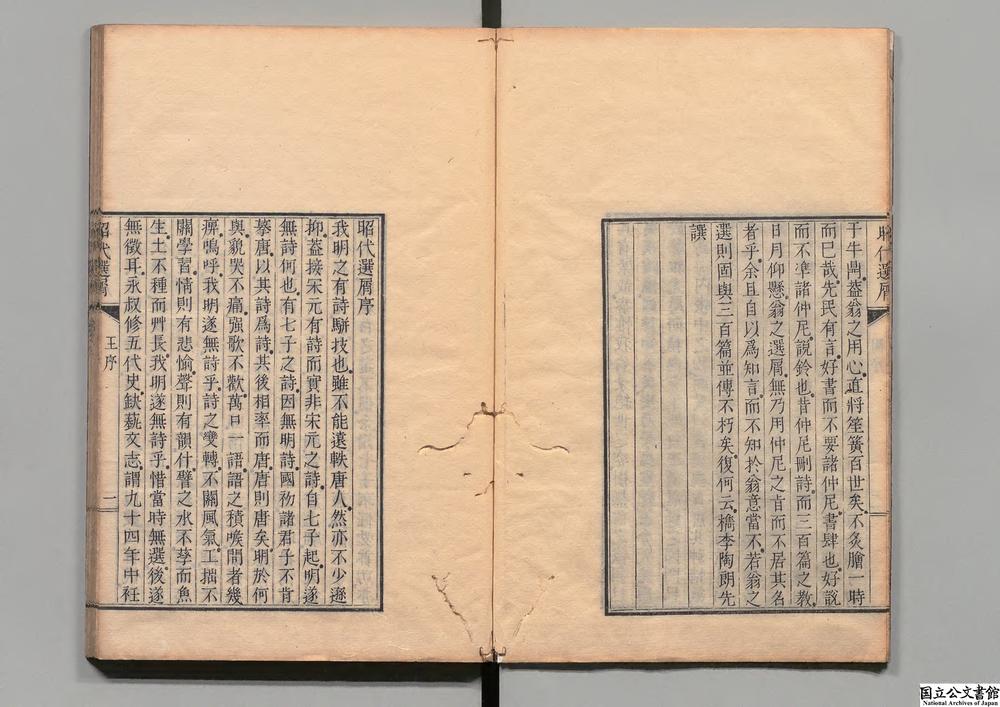 于牛鼎蓋翁之用心直將笙簧百世矣不炙膾一時
而已哉先民有言好書而不要諸仲尼書肆也好說
而不準諸仲尼說鈴也昔仲尼刪詩而三百篇之教
日月仰懸翁之選屑無乃用仲尼之旨而不居其名
者乎余且自以為知言而不知於翁意當不若翁之
選則固與三百篇並傳不朽矣復何云檇李陶朗先
譔
昭代選屑序
我明之有詩駢技也雖不能遠軼唐人然亦不少遜
抑蓋接宋元有詩而實非宋元之詩自七子起明遂
無詩何也有七子之詩因無明詩國初諸君子不肯
摹唐以其詩爲詩其後相率而唐唐則唐矣明於何
與貌哭不痛強歌不歡萬口一語語之積喉間者幾
痹嗚呼我明遂無詩乎詩之變轉不關風氣工拙不
關學習情則有悲愉聲則有韻什譬之水不孳而魚
生土不種而艸長我明遂無詩乎惜當時無選後遂
無徵耳永叔修五代史缺藝文志謂九十四年中在
昭代選屑
王序
一
国立公文書館
National Archives of Japan